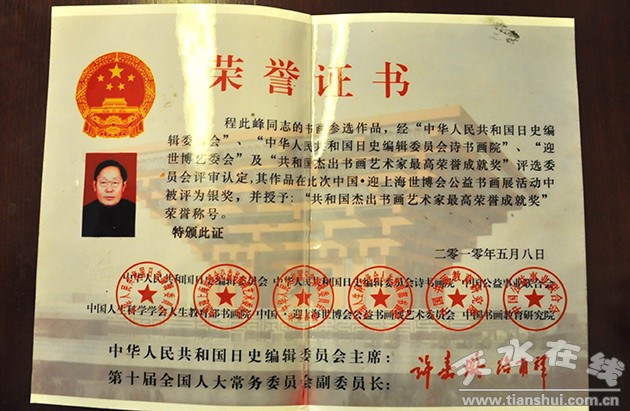 荣誉证书
程此峰同志的书画参选作品，经“中华人民共和国日史编
辑委员会”、“中华人民共和国日史编辑委员会诗书画院”、“迎
世博艺委会”及“共和国杰出书画艺术家最高荣誉成就奖”评选委
员会评审认定，其作品在此次中国·迎上海世博会公益书画展活动中
被评为银奖，并授予：“共和国杰出书画艺术家最高荣誉成就奖”
荣誉称号。
特颁此证
二〇一〇年五月八日
中华人民共和国日史编辑委员会 中华人民共和国日史编辑委员会诗书画院 中国公益事业联合会
中国人生科学学会人生教育部书画院 中国·迎上海世博会公益书画展艺术委员会 中国书画教育研究院
中华人民共和国日史编辑委员会主席：
第十届全国人大常务委员会副委员长：
天水在线
www.tianshui.com.cn